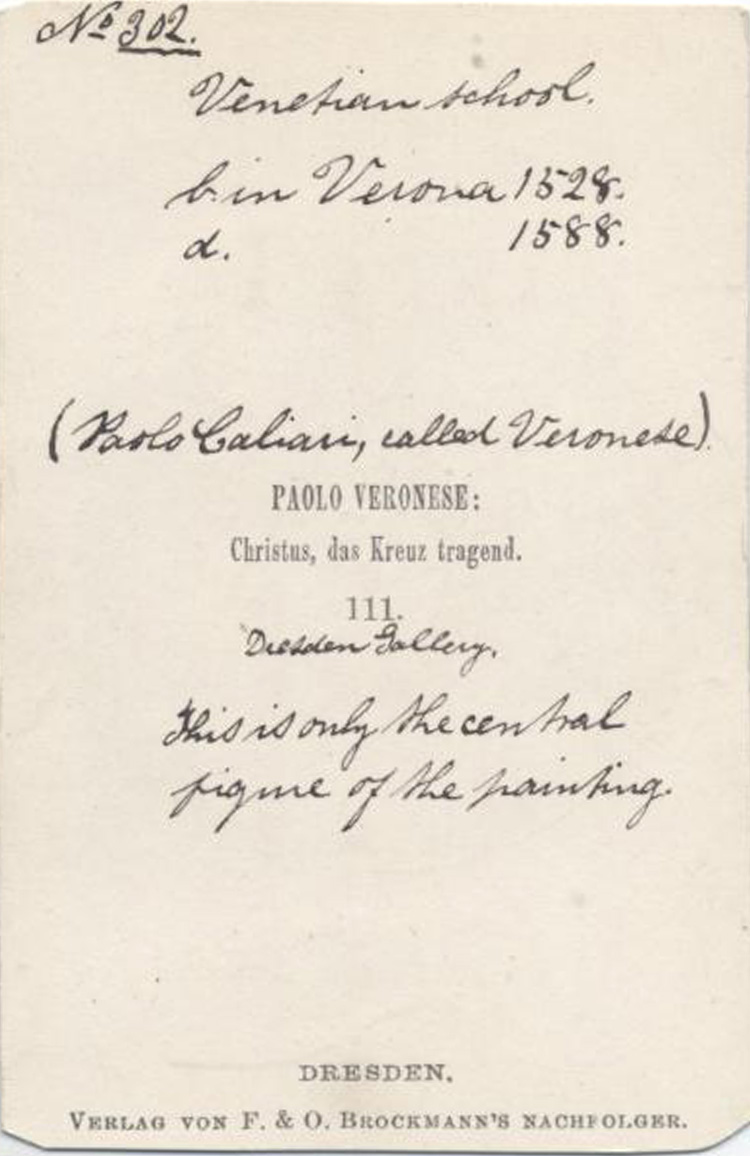 No 302.
Venetian school.
b. in Verona 1528.
d. 1588.
(Paolo Caliari, called Veronese).
PAOLO VERONESE:
Christus, das Kreuz tragend.
111.
Dresden Gallery.
This is only the central
figure of the painting.
DRESDEN.
VERLAG VON F. & O. BROCKMANN'S NACHFOLGER.